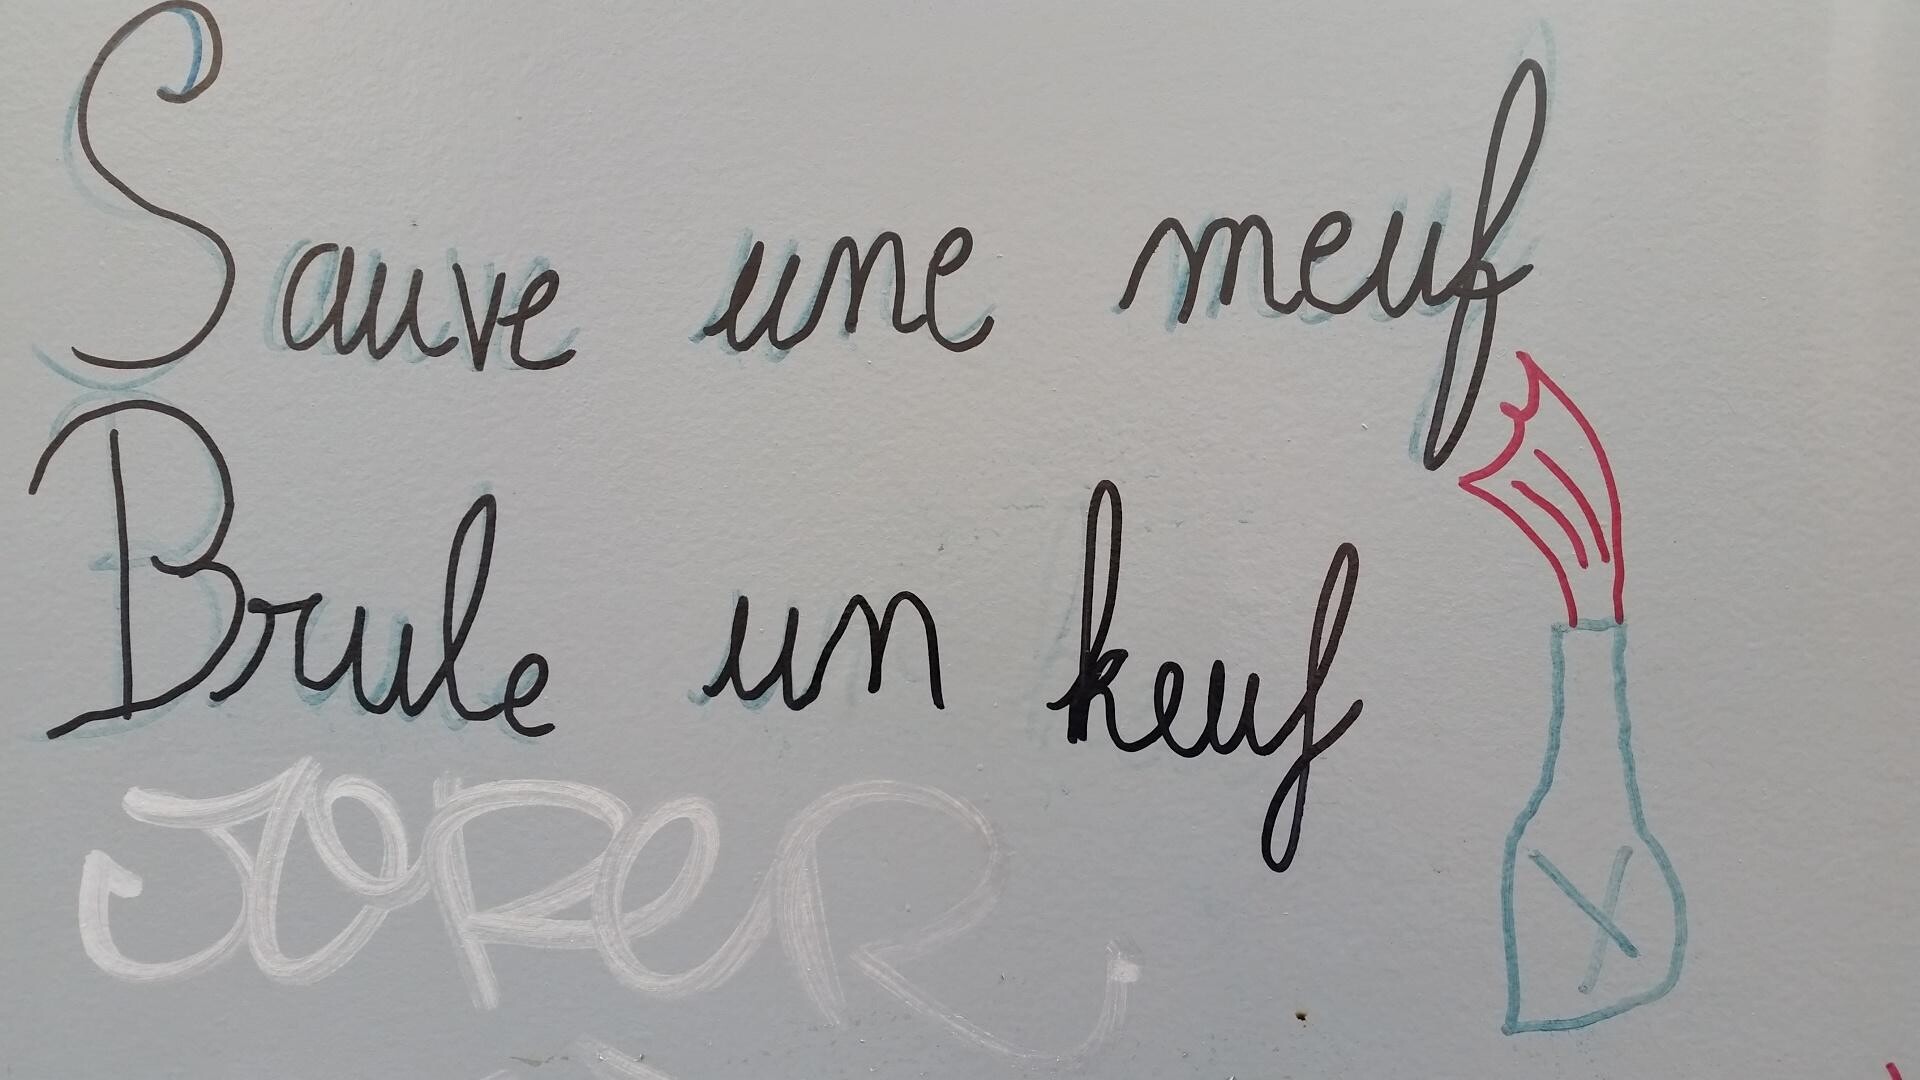 Sauve une meuf
Brule un keuf